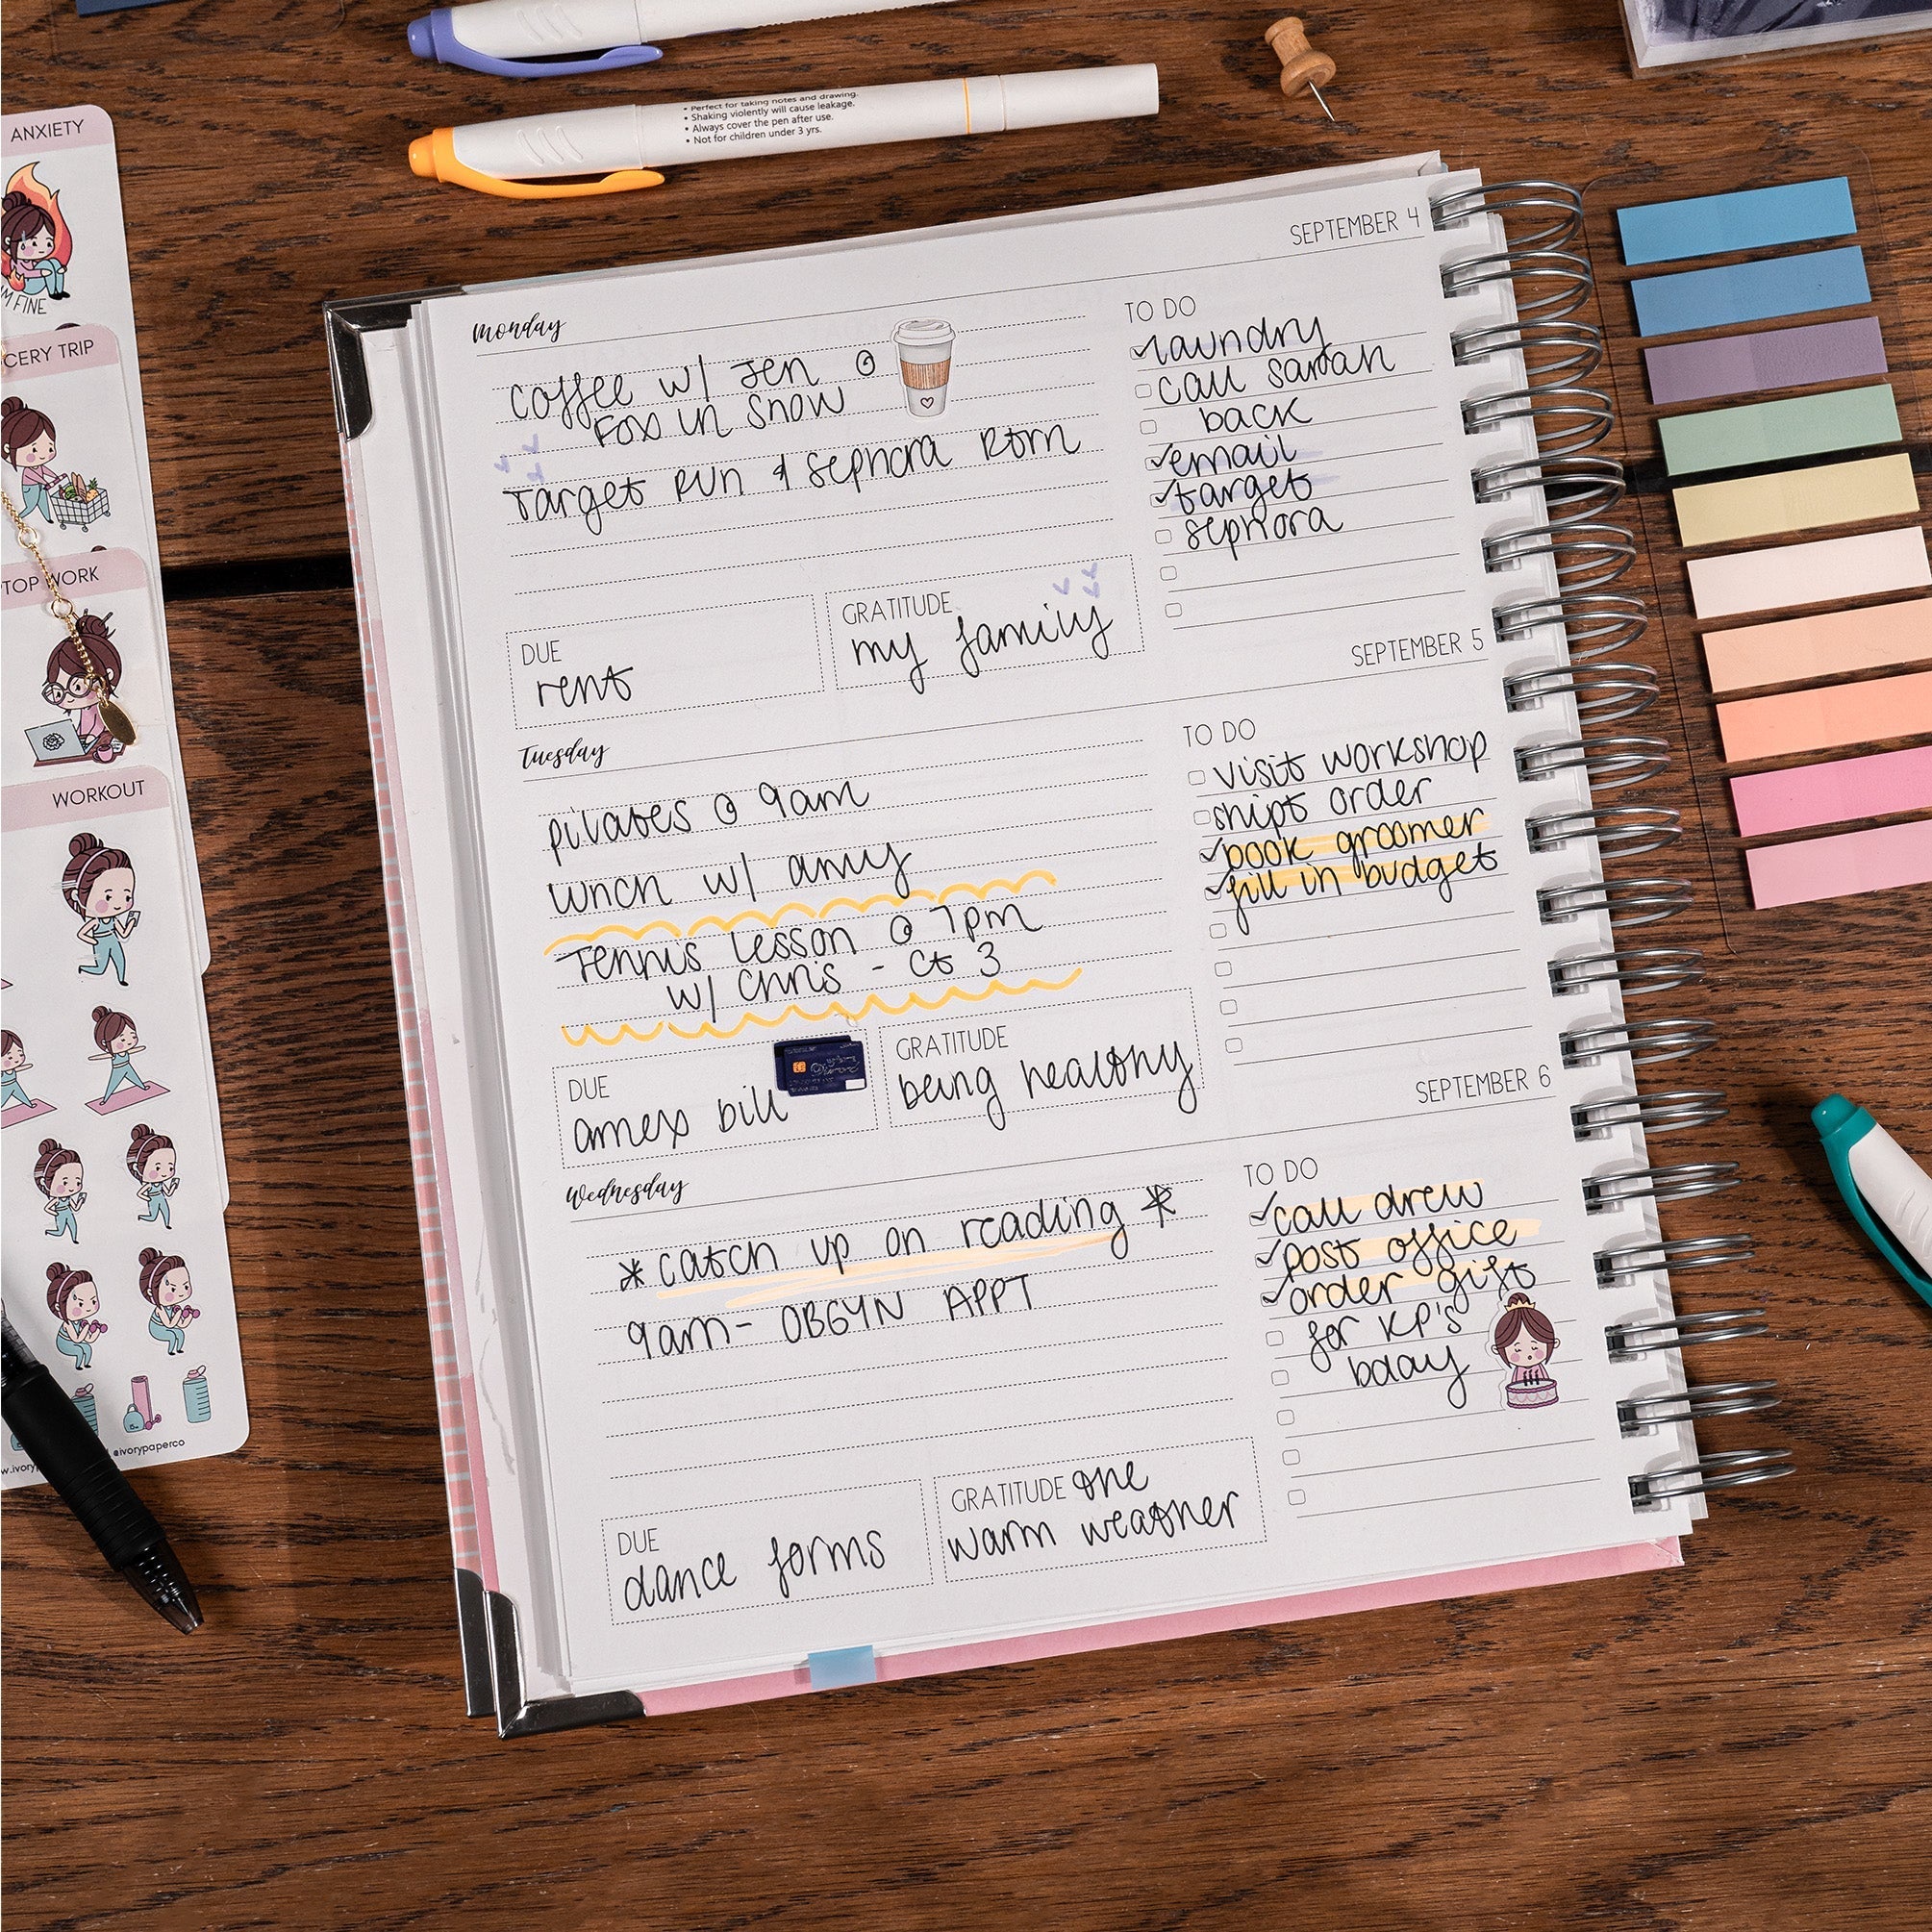 • Perfect for taking notes and drawing.
• Shaking violently will cause leakage.
• Always cover the pen after use.
• Not for children under 3 yrs.
ANXIETY
I'M FINE
CERY TRIP
TOP WORK
WORKOUT
@ivorypaperco
SEPTEMBER 4
Monday
coffee w/ Jen @
Fox in Snow
Target Run & Sephora Rtrn
DUE
rent
GRATITUDE
my family
TO DO
laundry
call sarah
back
email
target
sephora
SEPTEMBER 5
Tuesday
pilates @ 9am
lunch w/ amy
Tennis Lesson @ 7pm
w/ Chris - Ct 3
DUE
amex bill
GRATITUDE
being healthy
TO DO
visit workshop
ship order
book groomer
fill in budget
SEPTEMBER 6
Wednesday
* catch up on reading *
9am - OBGYN APPT
DUE
dance forms
GRATITUDE the
warm weather
TO DO
call drew
post office
order gift
for KP's
bday